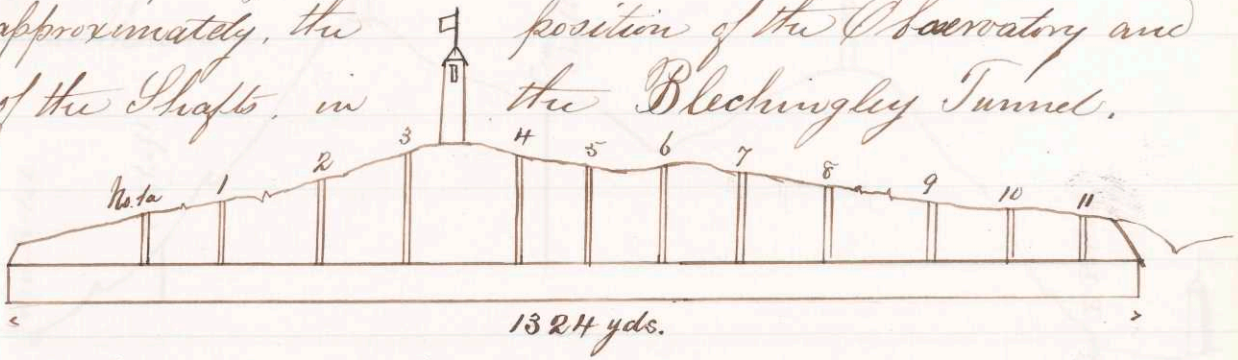 approximately, the position of the Observatory and
of the Shafts, in the Blechingley Tunnel.
No. 1a 1 2 3 4 5 6 7 8 9 10 11
1324 yds.